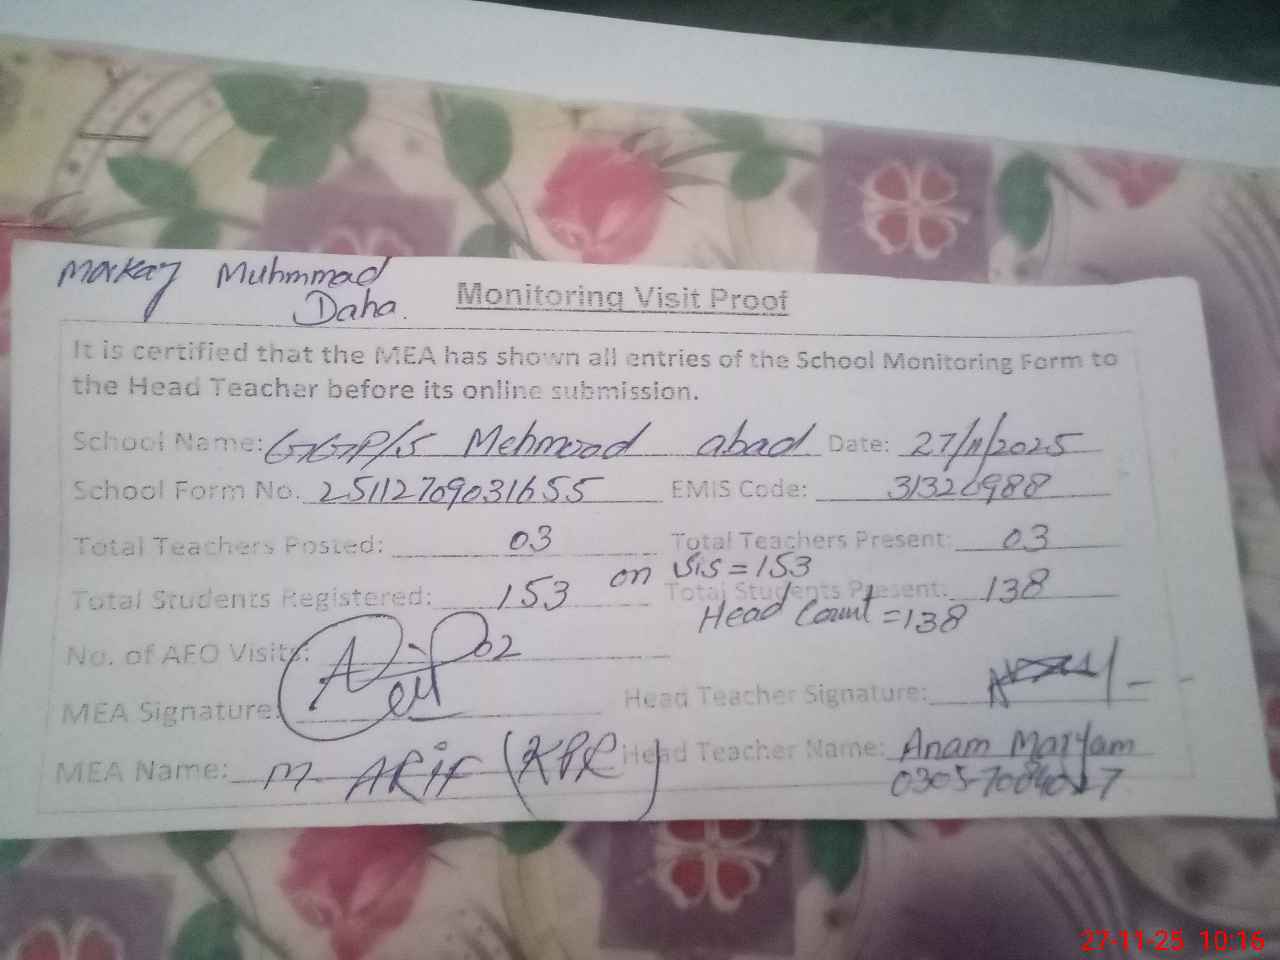 Markaz Muhmmad
Daha.
Monitoring Visit Proof
It is certified that the MEA has shown all entries of the School Monitoring Form to
the Head Teacher before its online submission.
School Name: GGP/S Mehmood abad Date: 27/11/2025
School Form No. 25112709031655 EMIS Code: 31326988
Total Teachers Posted: 03 Total Teachers Present: 03
on SiS = 153
Total Students Registered: 153 Total Students Present: 138
Head Count = 138
No. of AEO Visits: 02
MEA Signature: Head Teacher Signature:
MEA Name: M. ARIF (KPR) Head Teacher Name: Anam Maryam
27-11-25 10:16